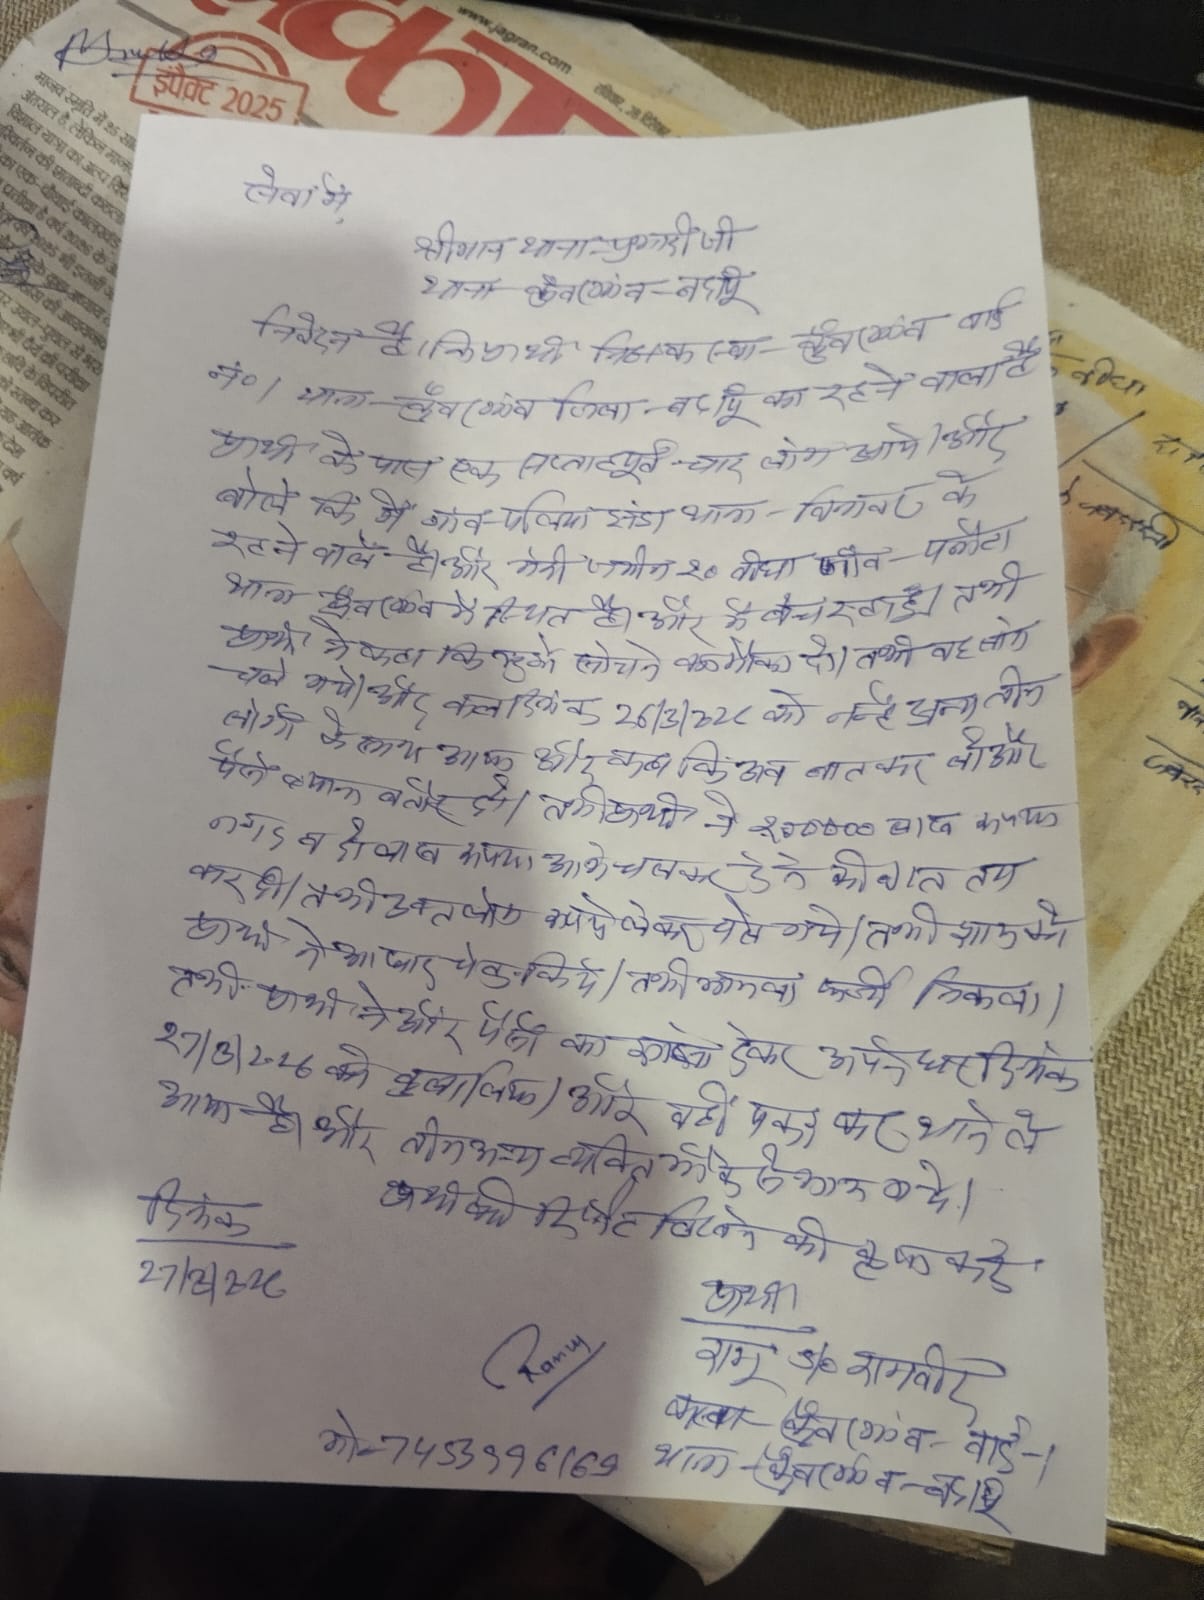 www.jagran.com
इंपैक्ट 2025
सेवा में,
श्रीमान थाना-प्रभारी जी
थाना-कुँवरगाँव-बदायूँ
निवेदन है। कि प्रार्थी कस्बा-कुँवरगाँव वार्ड
नं० 1 थाना-कुँवरगाँव जिला-बदायूँ का रहने वाला है
प्रार्थी के पास एक सप्ताह पूर्व चार लोग आये। और
बोले कि मैं गांव-पलिया झंडा थाना-बिनावर के
रहने वाले है। और मेरी जमीन २० बीघा गाँव-
थाना कुँवरगाँव में स्थित है। और मैं बेच रहा हूँ। तभी
प्रार्थी ने कहा कि मुझे सोचने का मौका दो। तभी वह लोग
चले गये। और कल दिनांक 26/3/2026 को अन्य तीन
लोगों के साथ आया और कहा कि अब बात कर लो और
पैसे बयाना दो। तभी प्रार्थी ने २००००० लाख रूपया
नगद व दो लाख रूपया आगे चलकर देने की बात तय
कर दी। तभी उक्त लोग रूपये लेकर चले गये। तभी शाम को
प्रार्थी ने आधार चेक किये। तभी मामला फर्जी निकला।
तभी प्रार्थी ने और पैसों का झांसा देकर अपने घर दिनांक
27/3/2026 को बुला लिया। और वही पकड़ कर थाने ले
आया है। और तीन अन्य व्यक्ति मौके से भाग गये।
प्रार्थी की रिपोर्ट लिखने की कृपा करें
दिनांक
27/3/2026
प्रार्थी
रामू S/o रामवीर
कस्बा-कुँवरगाँव-वार्ड-1
थाना-कुँवरगाँव-बदायूँ
Ramu
मो-7453996169